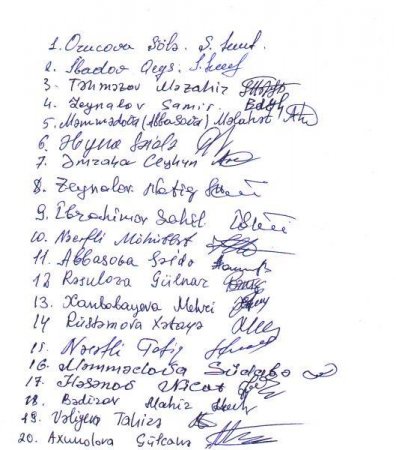 1. Orucova Şölə.
2. İbadov Qeys.
3. Təhməzov Məzahir
4. Zeynalov Samir.
5. Məmmədova (Abbasova) Məlahət
6. Şəlalə
7. Əmrahov Ceyhun
8. Zeynalov Natiq
9. İbrahimov Sahil
10. Nəcəfli Möhübbət
11. Abbasova Səidə
12. Rəsulova Gülnar
13. Xanbabayeva Mehri
14. Rüstəmova Xətayə
15. Nəcəfli Tofiq
16. Məmmədova Südabə
17. Həsənov Nicat
18. Bədirov Mahir
19. Vəliyeva Tahirə
20. Axundova Gülxanə